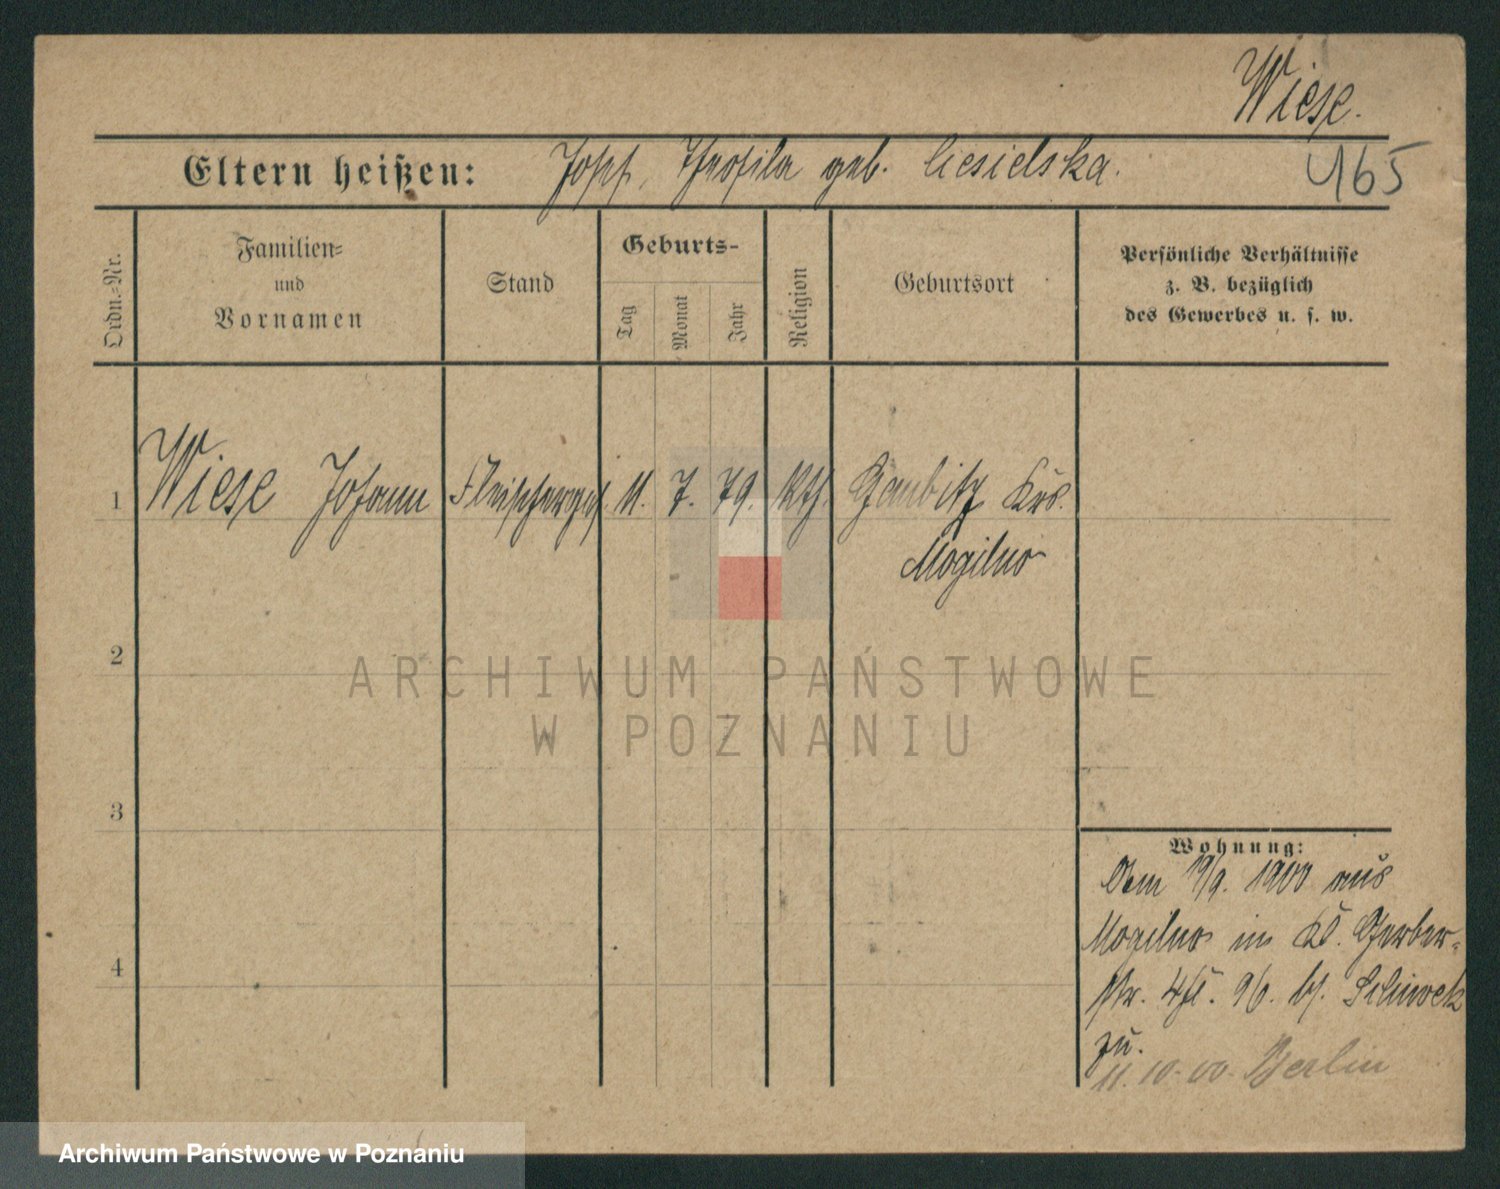 Wiese.
465
Eltern heißen: Josef, Theofila geb. Ciesielska.
Ordn.-Nr.
Familien- und Vornamen
Stand
Geburts-
Tag
Monat
Jahr
Religion
Geburtsort
Persönliche Verhältnisse
z. B. bezüglich
des Gewerbes u. s. w.
1 Wiese Johann Fleischerges. 11. 7. 79. kth. Gembitz Krs.
Mogilno
2
3
4
Wohnung:
19/9. 1900 aus
Mogilno in Kl. Gerber-
str. 4 bei
zu.
11. 10. 00. Berlin
ARCHIWUM PAŃSTWOWE
W POZNANIU
Archiwum Państwowe w Poznaniu